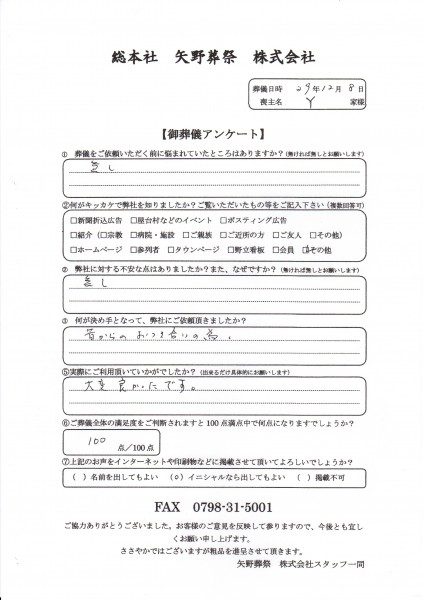 総本社 矢野葬祭 株式会社
葬儀日時 29年12月8日
喪主名 Y 家様
【御葬儀アンケート】
① 葬儀をご依頼いただく前に悩まれていたところはありますか?(無ければ無しとお願いします)
無し
②何がキッカケで弊社を知りましたか?ご覧いただいたもの等をご記入下さい(複数回答可)
□新聞折込広告 □屋台村などのイベント □ポスティング広告
□紹介(□宗教 □病院・施設 □ご親族 □ご近所の方 □ご友人 □その他)
□ホームページ □参列者 □タウンページ □野立看板 □会員 ☑その他
② 弊社に対する不安な点はありましたか?また、なぜですか?(無ければ無しとお願いします)
無し
③ 何が決め手となって、弊社にご依頼頂きましたか?
昔からのおつき合いの為。
⑤実際にご利用頂いていかがでしたか?(出来るだけ具体的にお願いします)
大変良かったです。
⑥ご葬儀全体の満足度をご判断されますと100点満点中で何点になりますでしょうか?
100 点/100点
⑦上記のお声をインターネットや印刷物などに掲載させて頂いてよろしいでしょうか?
( )名前を出してもよい (○)イニシャルなら出してもよい ( )掲載不可
FAX 0798-31-5001
ご協力ありがとうございました。お客様のご意見を反映して参りますので、今後とも宜し
くお願い申し上げます。
ささやかではございますが粗品を進呈させて頂きます。
矢野葬祭 株式会社スタッフ一同